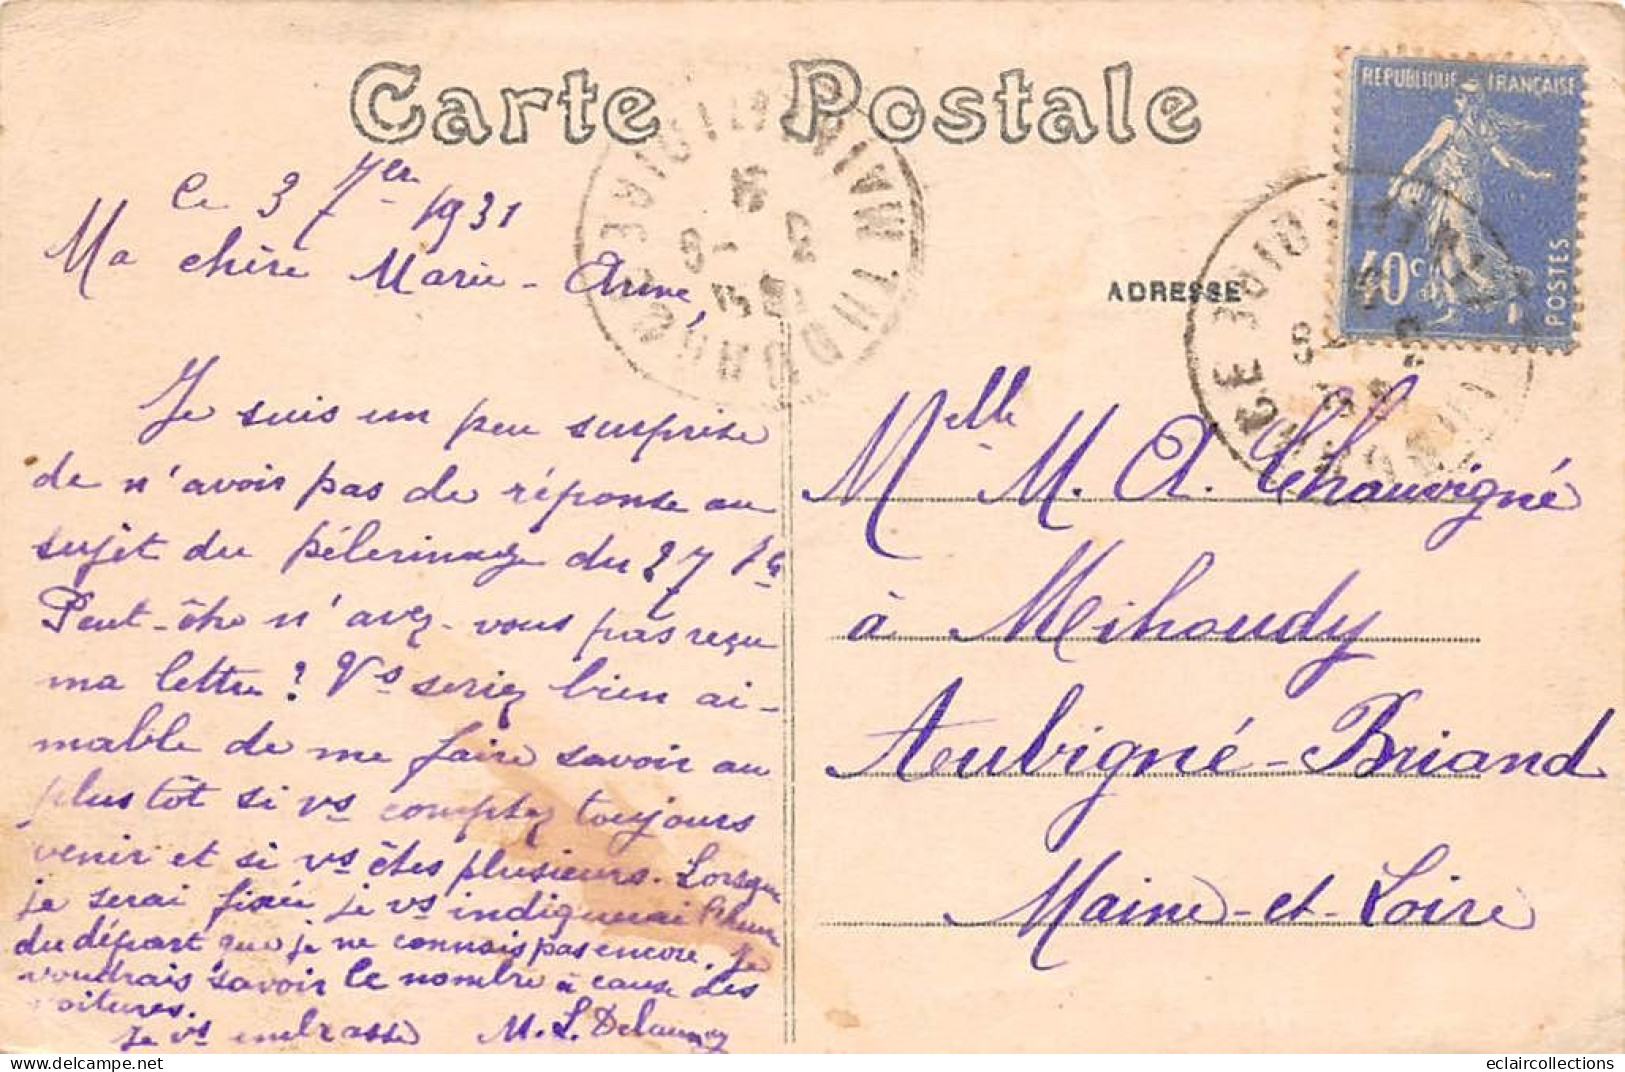 Carte Postale
RÉPUBLIQUE FRANÇAISE
40 c
POSTES
Ce 3 7er 1931
Ma chère Marie-Anne,
Je suis un peu surprise
de n'avoir pas de réponse au
sujet du pélerinage du 27 7re
Peut-être n'avez-vous pas reçu
ma lettre? Vs seriez bien ai-
mable de me faire savoir au
plus tôt si vs comptez toujours
venir et si vs êtes plusieurs. Lorsque
je serai fixée je vs indiquerai l'heure
du départ que je ne connais pas encore. Je
voudrais savoir le nombre à cause des
voitures.
Je vs embrasse M. L. Delaunay
ADRESSE
Melle M. A. Chauvigné
à Mihoudy
Aubigné-Briand
Maine-et-Loire
eclaircollections